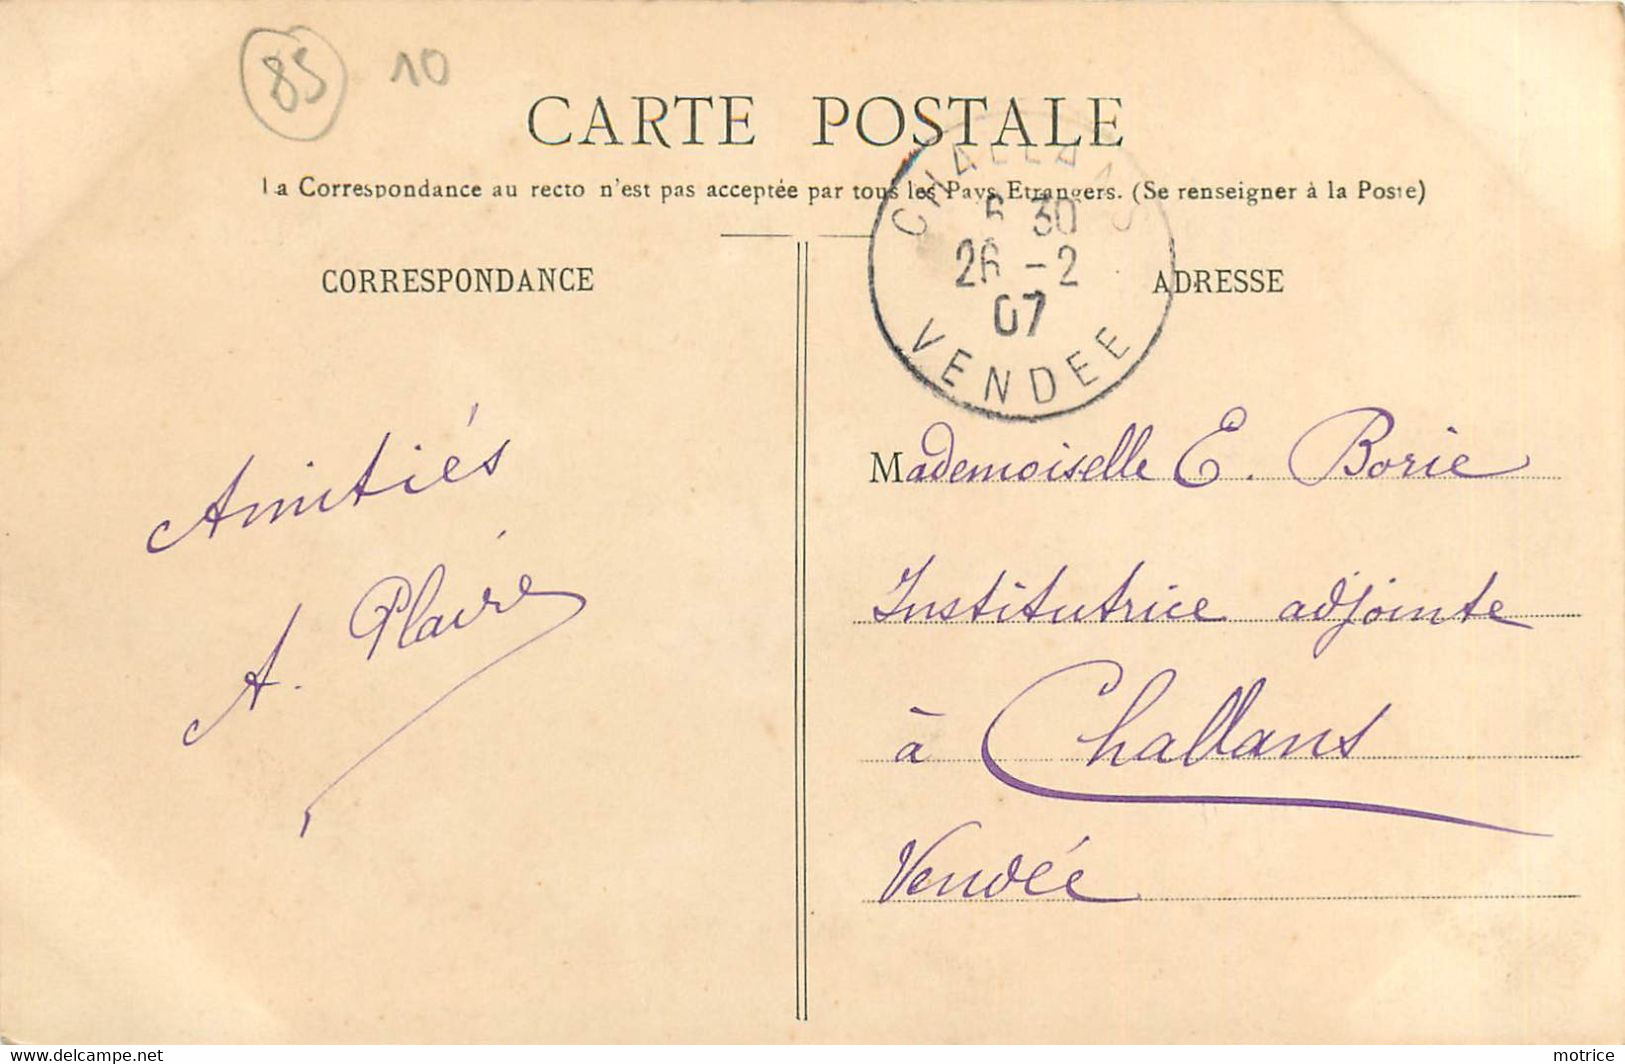 85 10
CARTE POSTALE
La Correspondance au recto n'est pas acceptée par tous les Pays Etrangers. (Se renseigner à la Poste)
CHALLANS
6 30
26 -2
07
VENDEE
CORRESPONDANCE
ADRESSE
Amitiés
A. Plaire
Mademoiselle E. Borie
Institutrice adjointe
à Challans
Vendée
www.delcampe.net
motrice